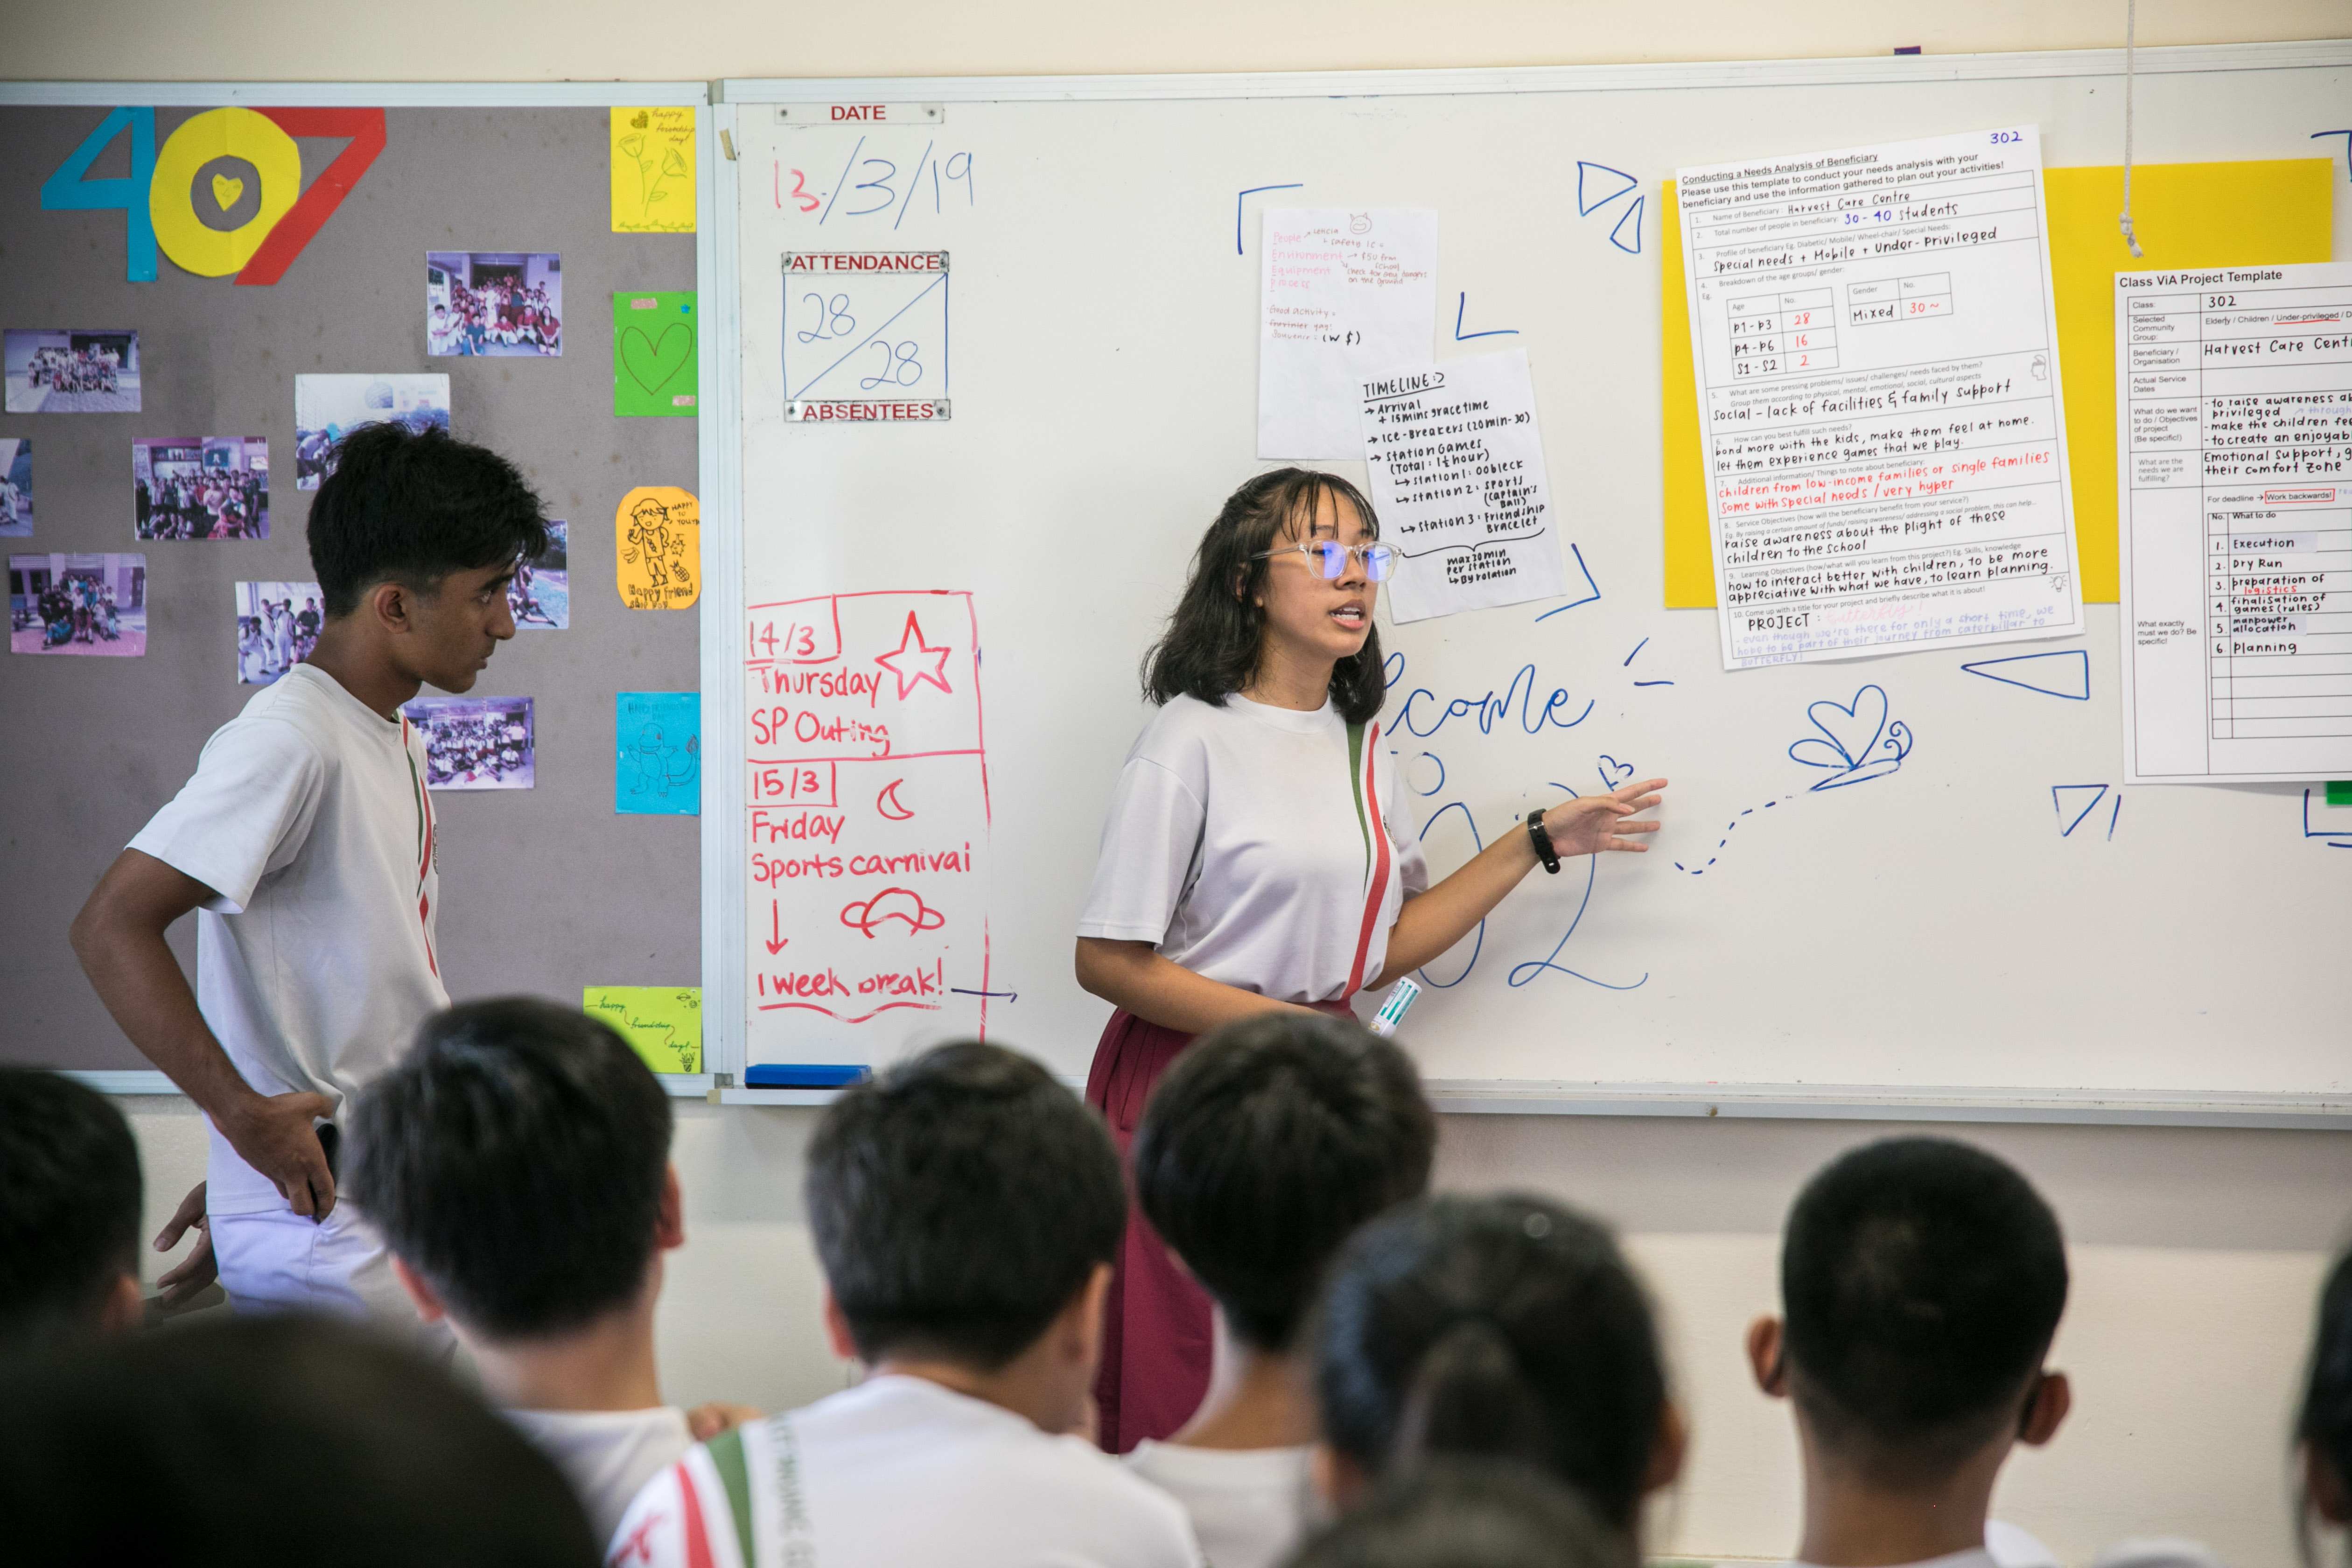 407
happy
friendship
day!
HAPPY
Happy Friend
ship Day
happy
friendship
day!
DATE
13/3/19
ATTENDANCE
28
28
ABSENTEES
14/3
Thursday
SP Outing
15/3
Friday
Sports carnival
1 week break!
People
safety IC
Environment
school
Equipment
on the ground
Process
Good activity
(w $)
TIMELINE:)
→ Arrival
+ 15mins grace time
→ Ice-Breakers (20min-30)
→ Station Games
(Total: 1½ hour)
↳ Station 1: Oobleck
↳ Station 2: Sports
(Captain's
Ball)
↳ Station 3: Friendship
Bracelet
max 30 min
per station
↳ By rotation
lcome
02
302
Conducting a Needs Analysis of Beneficiary
Please use this template to conduct your needs analysis with your
beneficiary and use the information gathered to plan out your activities!
1. Name of Beneficiary: Harvest Care Centre
2. Total number of people in beneficiary: 30 - 40 students
3. Profile of beneficiary Eg. Diabetic/ Mobile/ Wheel-chair/ Special Needs:
Special needs + Mobile + Under-Privileged
4. Breakdown of the age groups/ gender:
Eg.
Age No.
P1-P3 28
P4-P6 16
S1-S2 2
Gender No.
Mixed 30~
5. What are some pressing problems/ issues/ challenges/ needs faced by them?
Group them according to physical, mental, emotional, social, cultural aspects
Social - lack of facilities & family support
6. How can you best fulfill such needs?
bond more with the kids, make them feel at home.
let them experience games that we play.
7. Additional information/ Things to note about beneficiary:
children from low-income families or single families
some with special needs / very hyper
8. Service Objectives (how will the beneficiary benefit from your service?)
Eg. By raising a certain amount of funds/ raising awareness/ addressing a social problem, this can help...
raise awareness about the plight of these
children to the school
9. Learning Objectives (how/what will you learn from this project?) Eg. Skills, knowledge
how to interact better with children, to be more
appreciative with what we have, to learn planning.
10. Come up with a title for your project and briefly describe what it is about!
PROJECT: Butterfly!
- even though we're there for only a short time, we
hope to be part of their journey from caterpillar to
BUTTERFLY!
Class ViA Project Template
Class: 302
Selected
Community
Group:
Elderly / Children / Under-privileged / D
Beneficiary /
Organisation
Harvest Care Cent
Actual Service
Dates
What do we want
to do / Objectives
of project
(Be specific!)
- to raise awareness ab
privileged through
- make the children fee
- to create an enjoyab
What are the
needs we are
fulfilling?
Emotional support, g
their comfort zone
What exactly
must we do? Be
specific!
For deadline → Work backwards!
No. What to do
1. Execution
2. Dry Run
3. preparation of
logistics
4. finalisation of
games (rules)
5. manpower
allocation
6 Planning